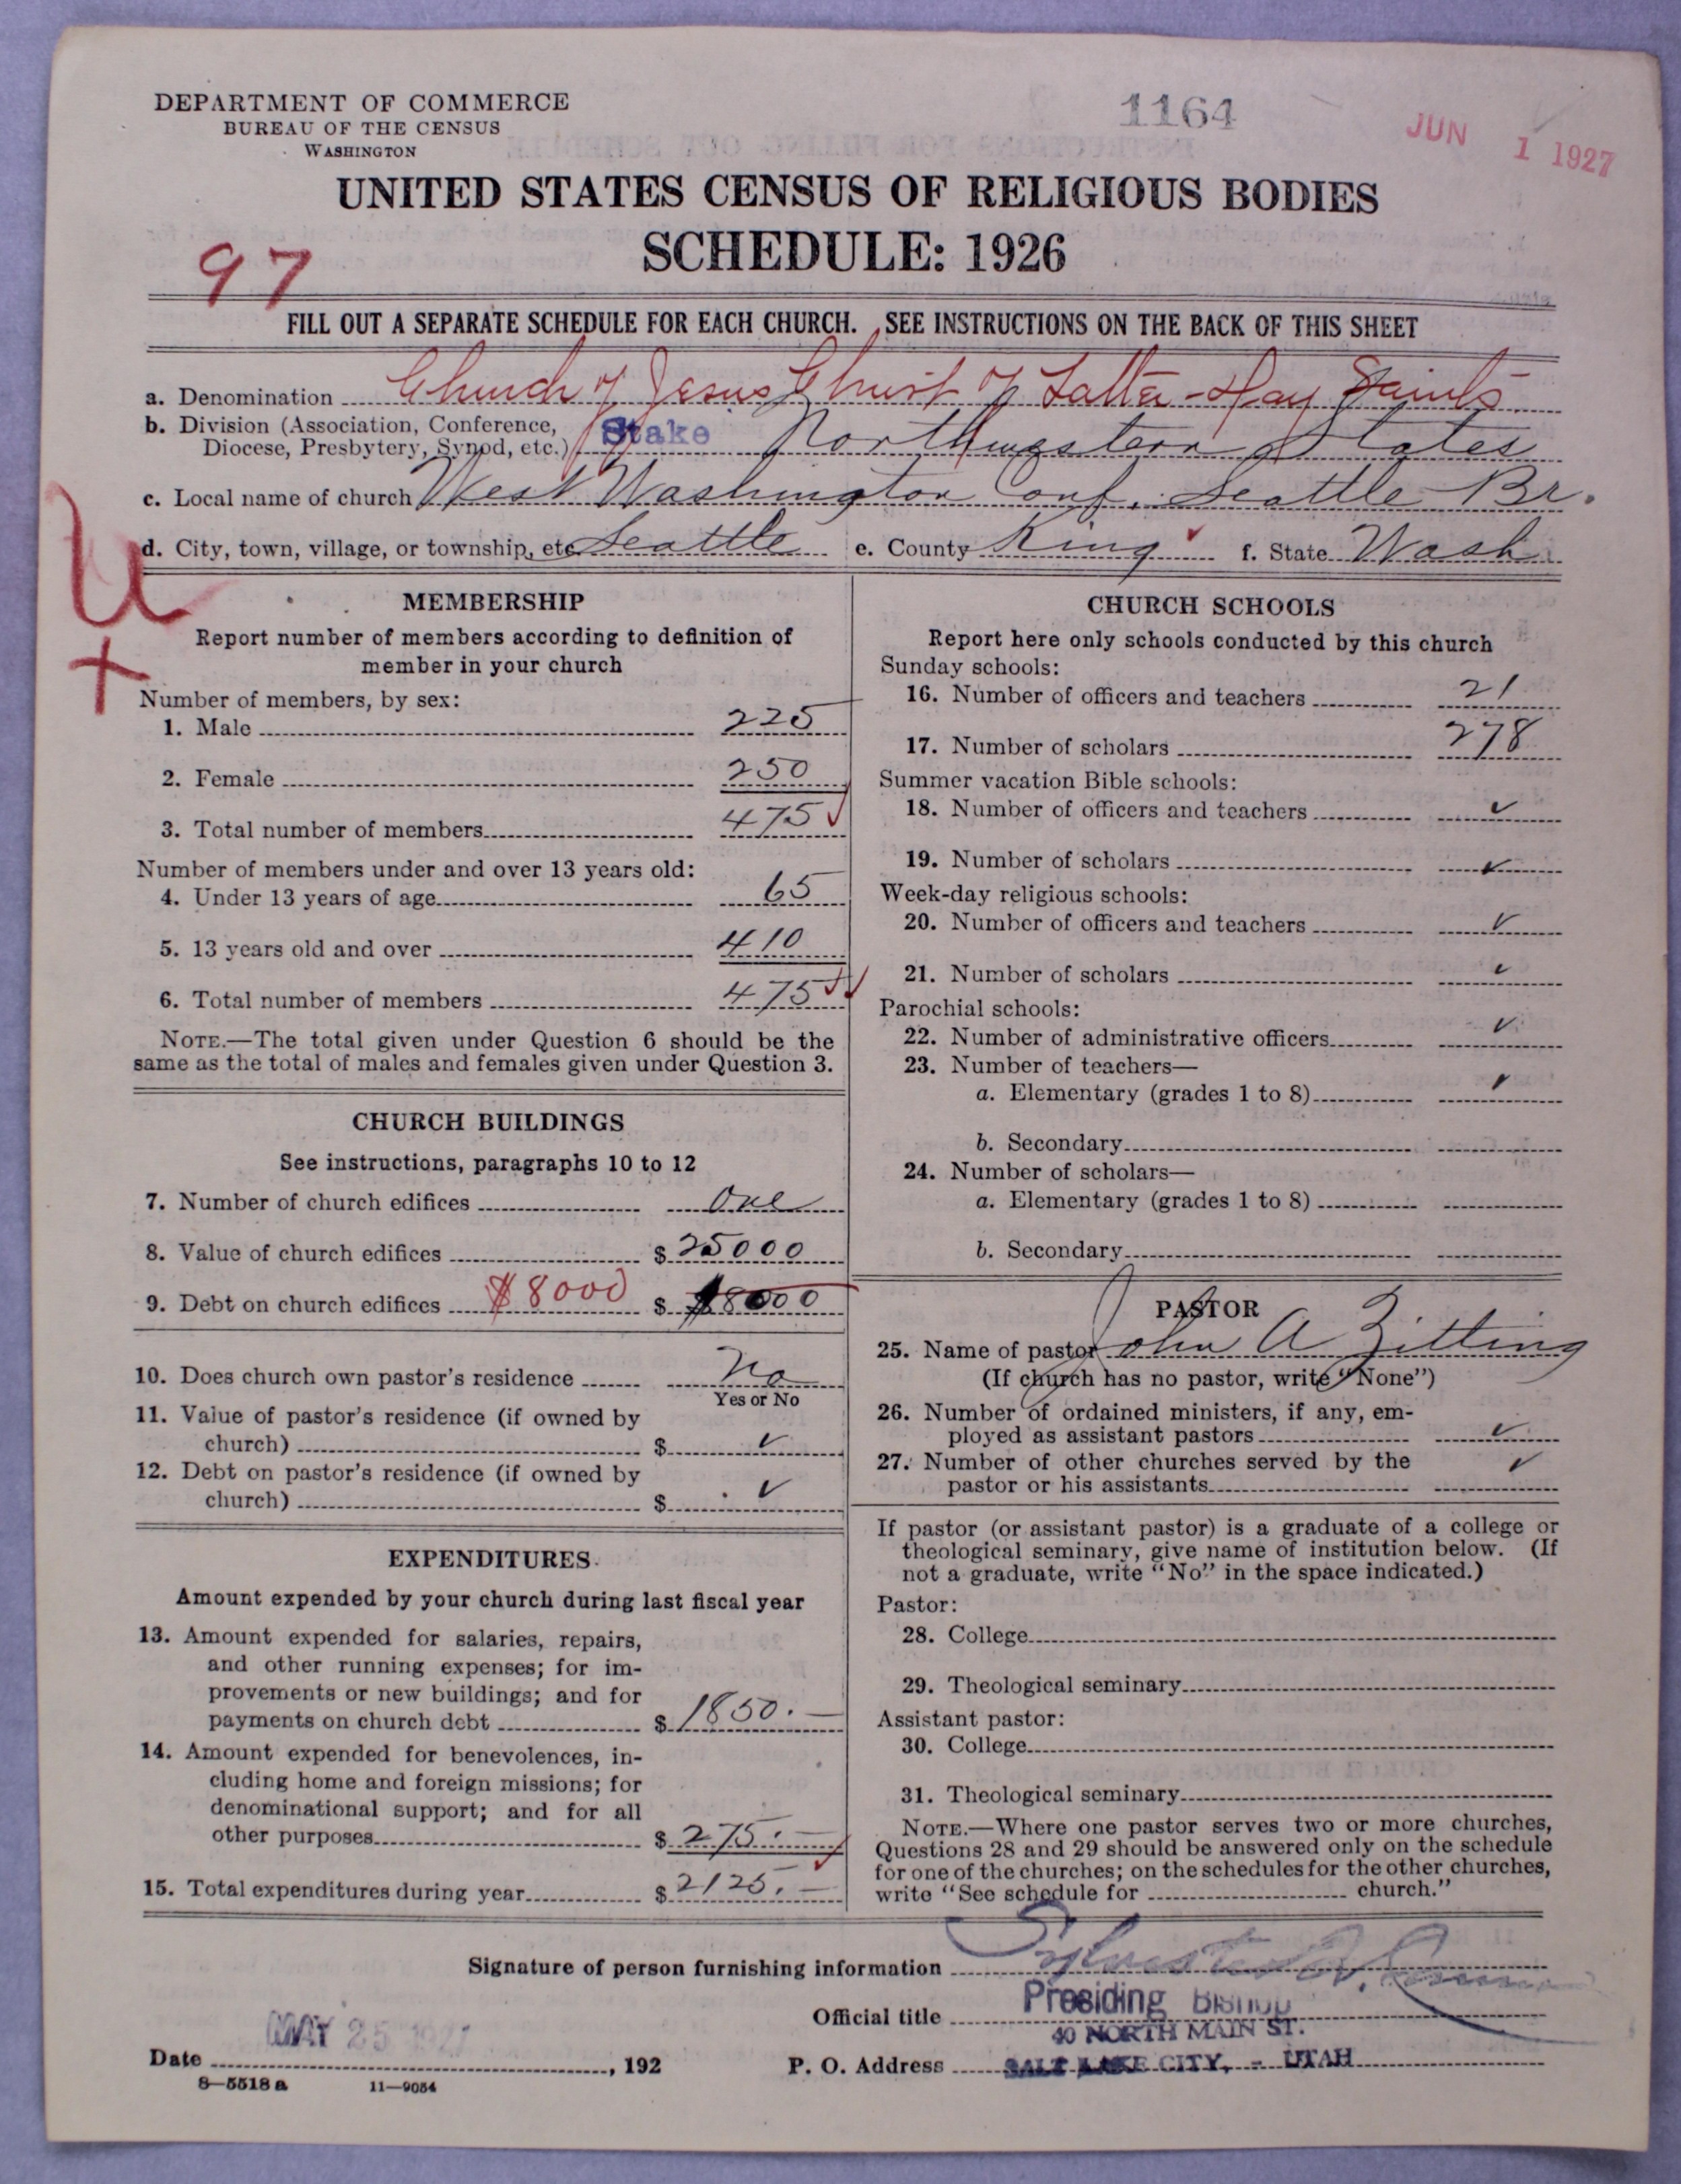 DEPARTMENT OF COMMERCE
BUREAU OF THE CENSUS
WASHINGTON
1164
JUN 1 1927
UNITED STATES CENSUS OF RELIGIOUS BODIES
SCHEDULE: 1926
97
FILL OUT A SEPARATE SCHEDULE FOR EACH CHURCH. SEE INSTRUCTIONS ON THE BACK OF THIS SHEET
a. Denomination Church of Jesus Christ of Latter-Day Saints
b. Division (Association, Conference,
Diocese, Presbytery, Synod, etc.) Stake Northwestern States
c. Local name of church West Washington Conf. Seattle Br.
d. City, town, village, or township, etc. Seattle e. County King f. State Wash.
U
+
MEMBERSHIP
Report number of members according to definition of
member in your church
Number of members, by sex:
1. Male 225
2. Female 250
3. Total number of members 475
Number of members under and over 13 years old:
4. Under 13 years of age 65
5. 13 years old and over 410
6. Total number of members 475
NOTE.—The total given under Question 6 should be the
same as the total of males and females given under Question 3.
CHURCH BUILDINGS
See instructions, paragraphs 10 to 12
7. Number of church edifices One
8. Value of church edifices $ 25000
9. Debt on church edifices $8000 $ 8000
10. Does church own pastor's residence No
Yes or No
11. Value of pastor's residence (if owned by
church) $ ✓
12. Debt on pastor's residence (if owned by
church) $ ✓
EXPENDITURES
Amount expended by your church during last fiscal year
13. Amount expended for salaries, repairs,
and other running expenses; for im-
provements or new buildings; and for
payments on church debt $ 1850.—
14. Amount expended for benevolences, in-
cluding home and foreign missions; for
denominational support; and for all
other purposes $ 275.—
15. Total expenditures during year $ 2125.—
CHURCH SCHOOLS
Report here only schools conducted by this church
Sunday schools:
16. Number of officers and teachers 21
17. Number of scholars 278
Summer vacation Bible schools:
18. Number of officers and teachers ✓
19. Number of scholars ✓
Week-day religious schools:
20. Number of officers and teachers ✓
21. Number of scholars ✓
Parochial schools:
22. Number of administrative officers ✓
23. Number of teachers—
a. Elementary (grades 1 to 8) ✓
b. Secondary
24. Number of scholars—
a. Elementary (grades 1 to 8)
b. Secondary
PASTOR
25. Name of pastor John A Zitting
(If church has no pastor, write "None")
26. Number of ordained ministers, if any, em-
ployed as assistant pastors ✓
27. Number of other churches served by the
pastor or his assistants ✓
If pastor (or assistant pastor) is a graduate of a college or
theological seminary, give name of institution below. (If
not a graduate, write "No" in the space indicated.)
Pastor:
28. College
29. Theological seminary
Assistant pastor:
30. College
31. Theological seminary
NOTE.—Where one pastor serves two or more churches,
Questions 28 and 29 should be answered only on the schedule
for one of the churches; on the schedules for the other churches,
write "See schedule for church."
Signature of person furnishing information Sylvester Q. Cannon
Official title Presiding Bishop
40 NORTH MAIN ST.
Date MAY 25 1927, 192
P. O. Address SALT LAKE CITY, - UTAH
8—5518 a 11—9054